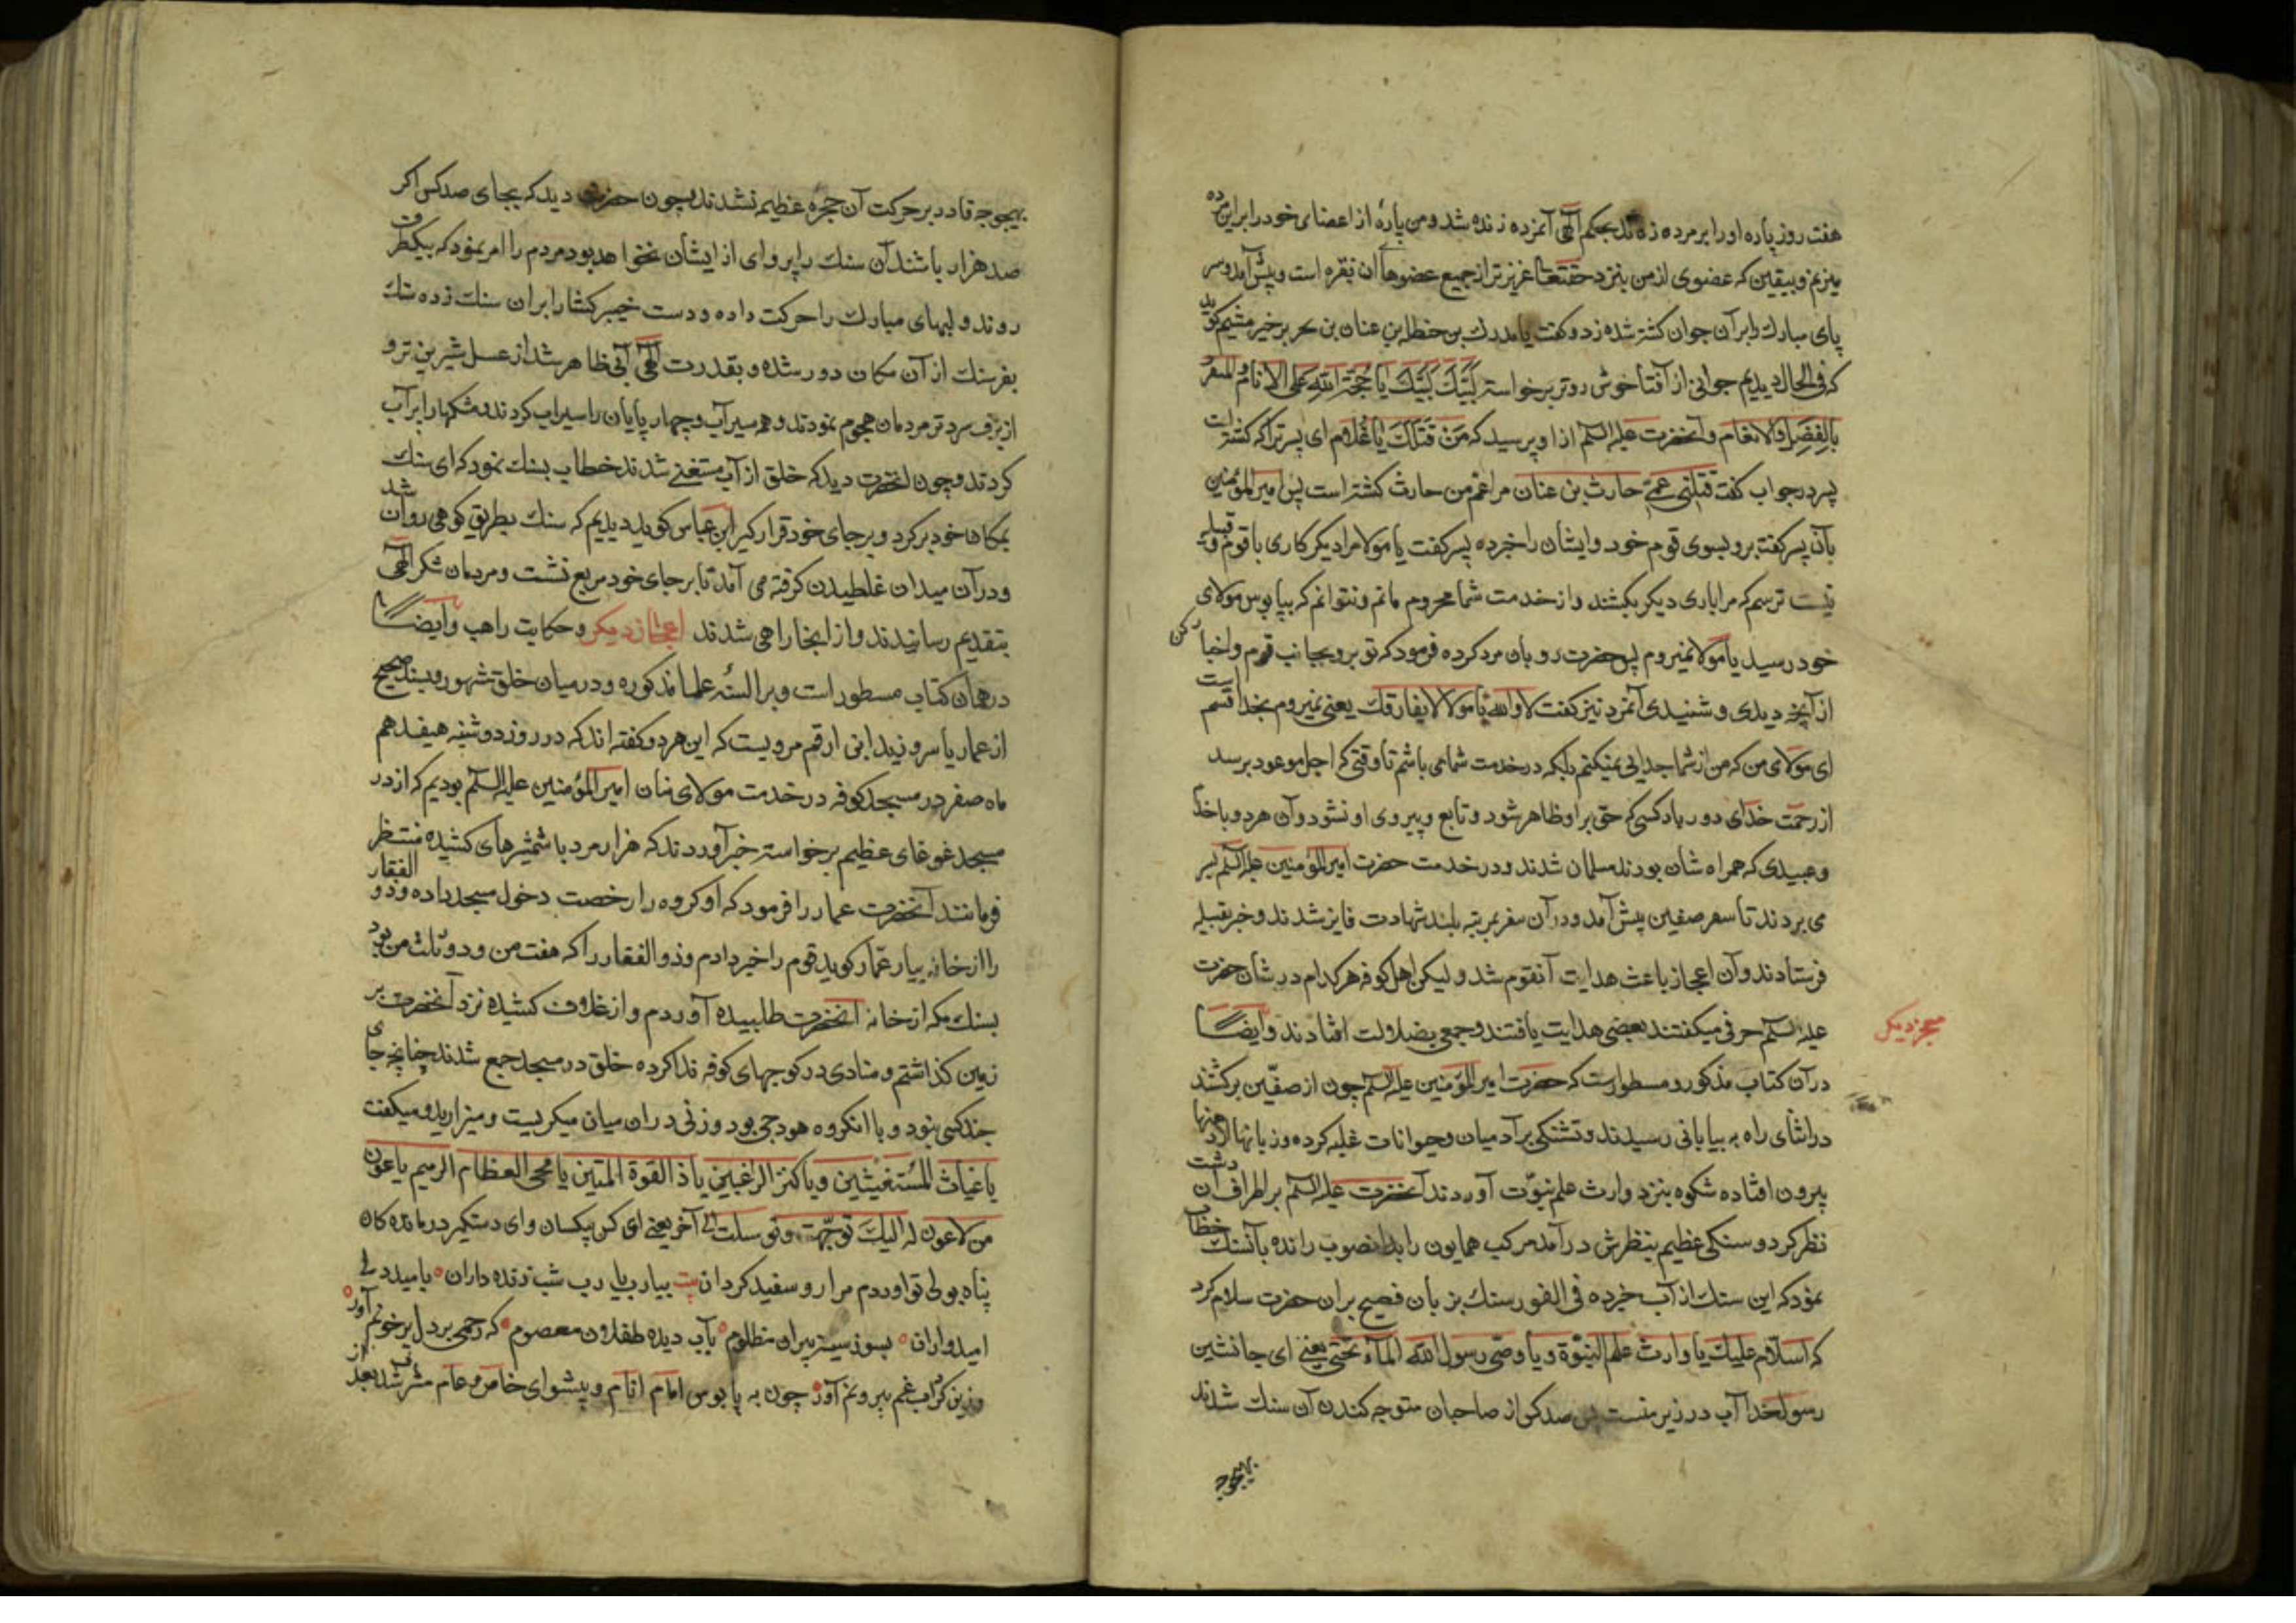 هفت روز پاره او را بر مرده زدند بحکم الهی آنمرده زنده شد و من پارهٔ از اعضای خود را بر این مرده
میزنم و بیقین که عضوی از من بنزد حقتعا عزیزتر از جمیع عضوهاٴ ان بقره است و پیش آمد و سر
پای مبارک را بر آن جوان کشته شده زد و کفت یا مدرک بن حنظله بن عنان بن بحر برخیز میثم کوید
که فی الحال دیدیم جوانی از آفتا خوش روتر برخواسته لَبَّیْکَ لَبَّیْکَ یا حُجَّةَ اللّه عَلَی الانام و المتفرد
بالفضل و الانعام و آنحضرت علیه السلم ازا و پرسید که مَنْ قَتَلَکَ یا غُلام ای پسر ترا که کشته است
پسر در جواب کفت قَتَلَنی عَمّی حارث بن عنان مرا عمّ من حارث کشته است پس امیر المؤمنین
بآن پسر کفت برو بسوی قوم خود و ایشان را خبر ده پسر کفت یا مولا مرا دیکر کاری با قوم و قبیله
نیست ترسم که مرا باری دیکر بکشند و از خدمت شما محروم مانم و نتوانم که بپا بوس مولای
خود رسید یا مولا نمیروم پس حضرت رو بان مرد کرده فرمود که تو برو بجانب قوم و اخبار کن
از آنچه دیدی و شنیدی آنمرد نیز کفت لا و الله یا مولا لا یفارقک یعنی نمیروم بخدا قسم است
ای مولای من که من از شما جدایی نمیکنم بلکه در خدمت شما می باشم تا وقتی که اجل موعود برسد
از رحمت خدای دور باد کسی که حق بر او ظاهر شود و تابع و پیروی او نشود و آن هر دو با خدّام
و عبیدی که همراه شان بودند مسلمان شدند و در خدمت حضرت امیر المؤمنین علیه السلم بسر
می بردند تا سفر صفین پیش آمد و در آن سفر بمرتبه بلند شهادت فایز شدند و خبر بقبیله
فرستادند و آن اعجاز باعث هدایت آنقوم شد و لیکن اهل کوفه هر کدام در شان حضرت
علیه السلم حرفی میکفتند بعضی هدایت یافتند و جمعی بضلالت افتادند و ایضًا
معجز دیکر
در آن کتاب مذکور و مسطور است که حضرت امیر المؤمنین علیه السلم چون از صفّین برکشتند
در اثنای راه به بیابانی رسیدند و تشنکی بر آدمیان و حیوانات غلبه کرده و زبانها از دهنها
بیرون افتاده شکوه بنزد وارث علم نبوّت آوردند آنحضرت علیه السلم بر اطراف آن دشت
نظر کرد و سنکی عظیم بنظرش در آمد مرکب همایون را بدانصوب رانده بآنسنک خطاب
نمود که این سنک از آب خبر ده فی الفور سنک بزبان فصیح بران حضرت سلام کرد
که اسلام علیک یا وارث علم النبوّة و یا وصی رسول الله الماء تحتی یعنی ای جانشین
رسول خدا آب در زیر منست پس صد کس از صاحبان متوجه کندن آن سنک شدند
بهیچوجه
بهیچوجه قادر بر حرکت آن حجره عظیم نشدند و چون حضرت دید که بجای صد کس اکر
صد هزار باشند آن سنک را پروای از ایشان نخواهد بود مردم را امر نمود که بیکطرف
روند و لبهای مبارک را حرکت داده و دست خیبر کشا را بران سنک زده سنک
بفرسنک از آن مکان دور شده و بقدرت الهی آبی ظاهر شد از عسل شیرین تر و
از برف سرد تر مردمان هجوم نمودند و همه سیر آب و چهار پایان را سیراب کردند و مشکها را پر آب
کردند و چون انحضرت دید که خلق از آب مستغنی شدند خطاب بسنک نمود که ای سنک
بمکان خود برکرد و بر جای خود قرار کیر ابن عباس کوید دیدیم که سنک بطریق کوهی روان شد
و در آن میدان غلطیدن کرفته می آمد تا بر جای خود مربع نشست و مردمان شکر الهی
بتقدیم رسانیدند و از انجا راهی شدند اعجاز دیکر و حکایت راهب و ایضًا
در همان کتاب مسطور است و بر السنه علما مذکوره و در میان خلق مشهور و بسند صحیح
از عمار یاسر و زید ابن ارقم مرویست که این هر دو کفته اند که در روز دوشنبه هیفدهم
ماه صفر در مسجد کوفه در خدمت مولای منان امیر المؤمنین علیه السلم بودیم که از در
مسجد غوغای عظیم برخواسته خبر آوردند که هزار مرد با شمشیرهای کشیده منتظر
فرمانند آنحضرت عمار را فرمود که او کروه را رخصت دخول مسجد داده و ذو الفقار
را از خانه بیار عمّار کوید قوم را خبر دادم و ذو الفقار را که هفت من و دو ثلث من بود
بسنک مکه از خانه انحضرت طلبیده آوردم و از غلاف کشیده نزد آنحضرت بر
زمین کذاشتم و منادی در کوچهای کوفه ندا کرده خلق در مسجد جمع شدند چنانچه جای
چند کسی نبود و با انکروه هودجی بود و زنی در ان میان میکریست و میزارید و میکفت
یا غیاث المستغیثین و یا کنز الراغبین یا ذ القوة المتین یا محی العظام الرمیم یا عون
من لا عون له الیک توجّهت و توسلت الی آخر یعنی ای کس بیکسان و ای دستکیر درمانده کان
پناه بولی تو اوردم مرا رو سفید کردان بیت بیارب یا رب شب زنده داران بامید دلِ
امیدواران بسوز سینه پیران مظلوم بآب دیده طفلان معصوم که رحمی بر دل پر خونم آور
وزین کرداب غم بیرونم آور چون به پا بوس امام انام و پیشوای خاص و عام مشرف شد بعد از